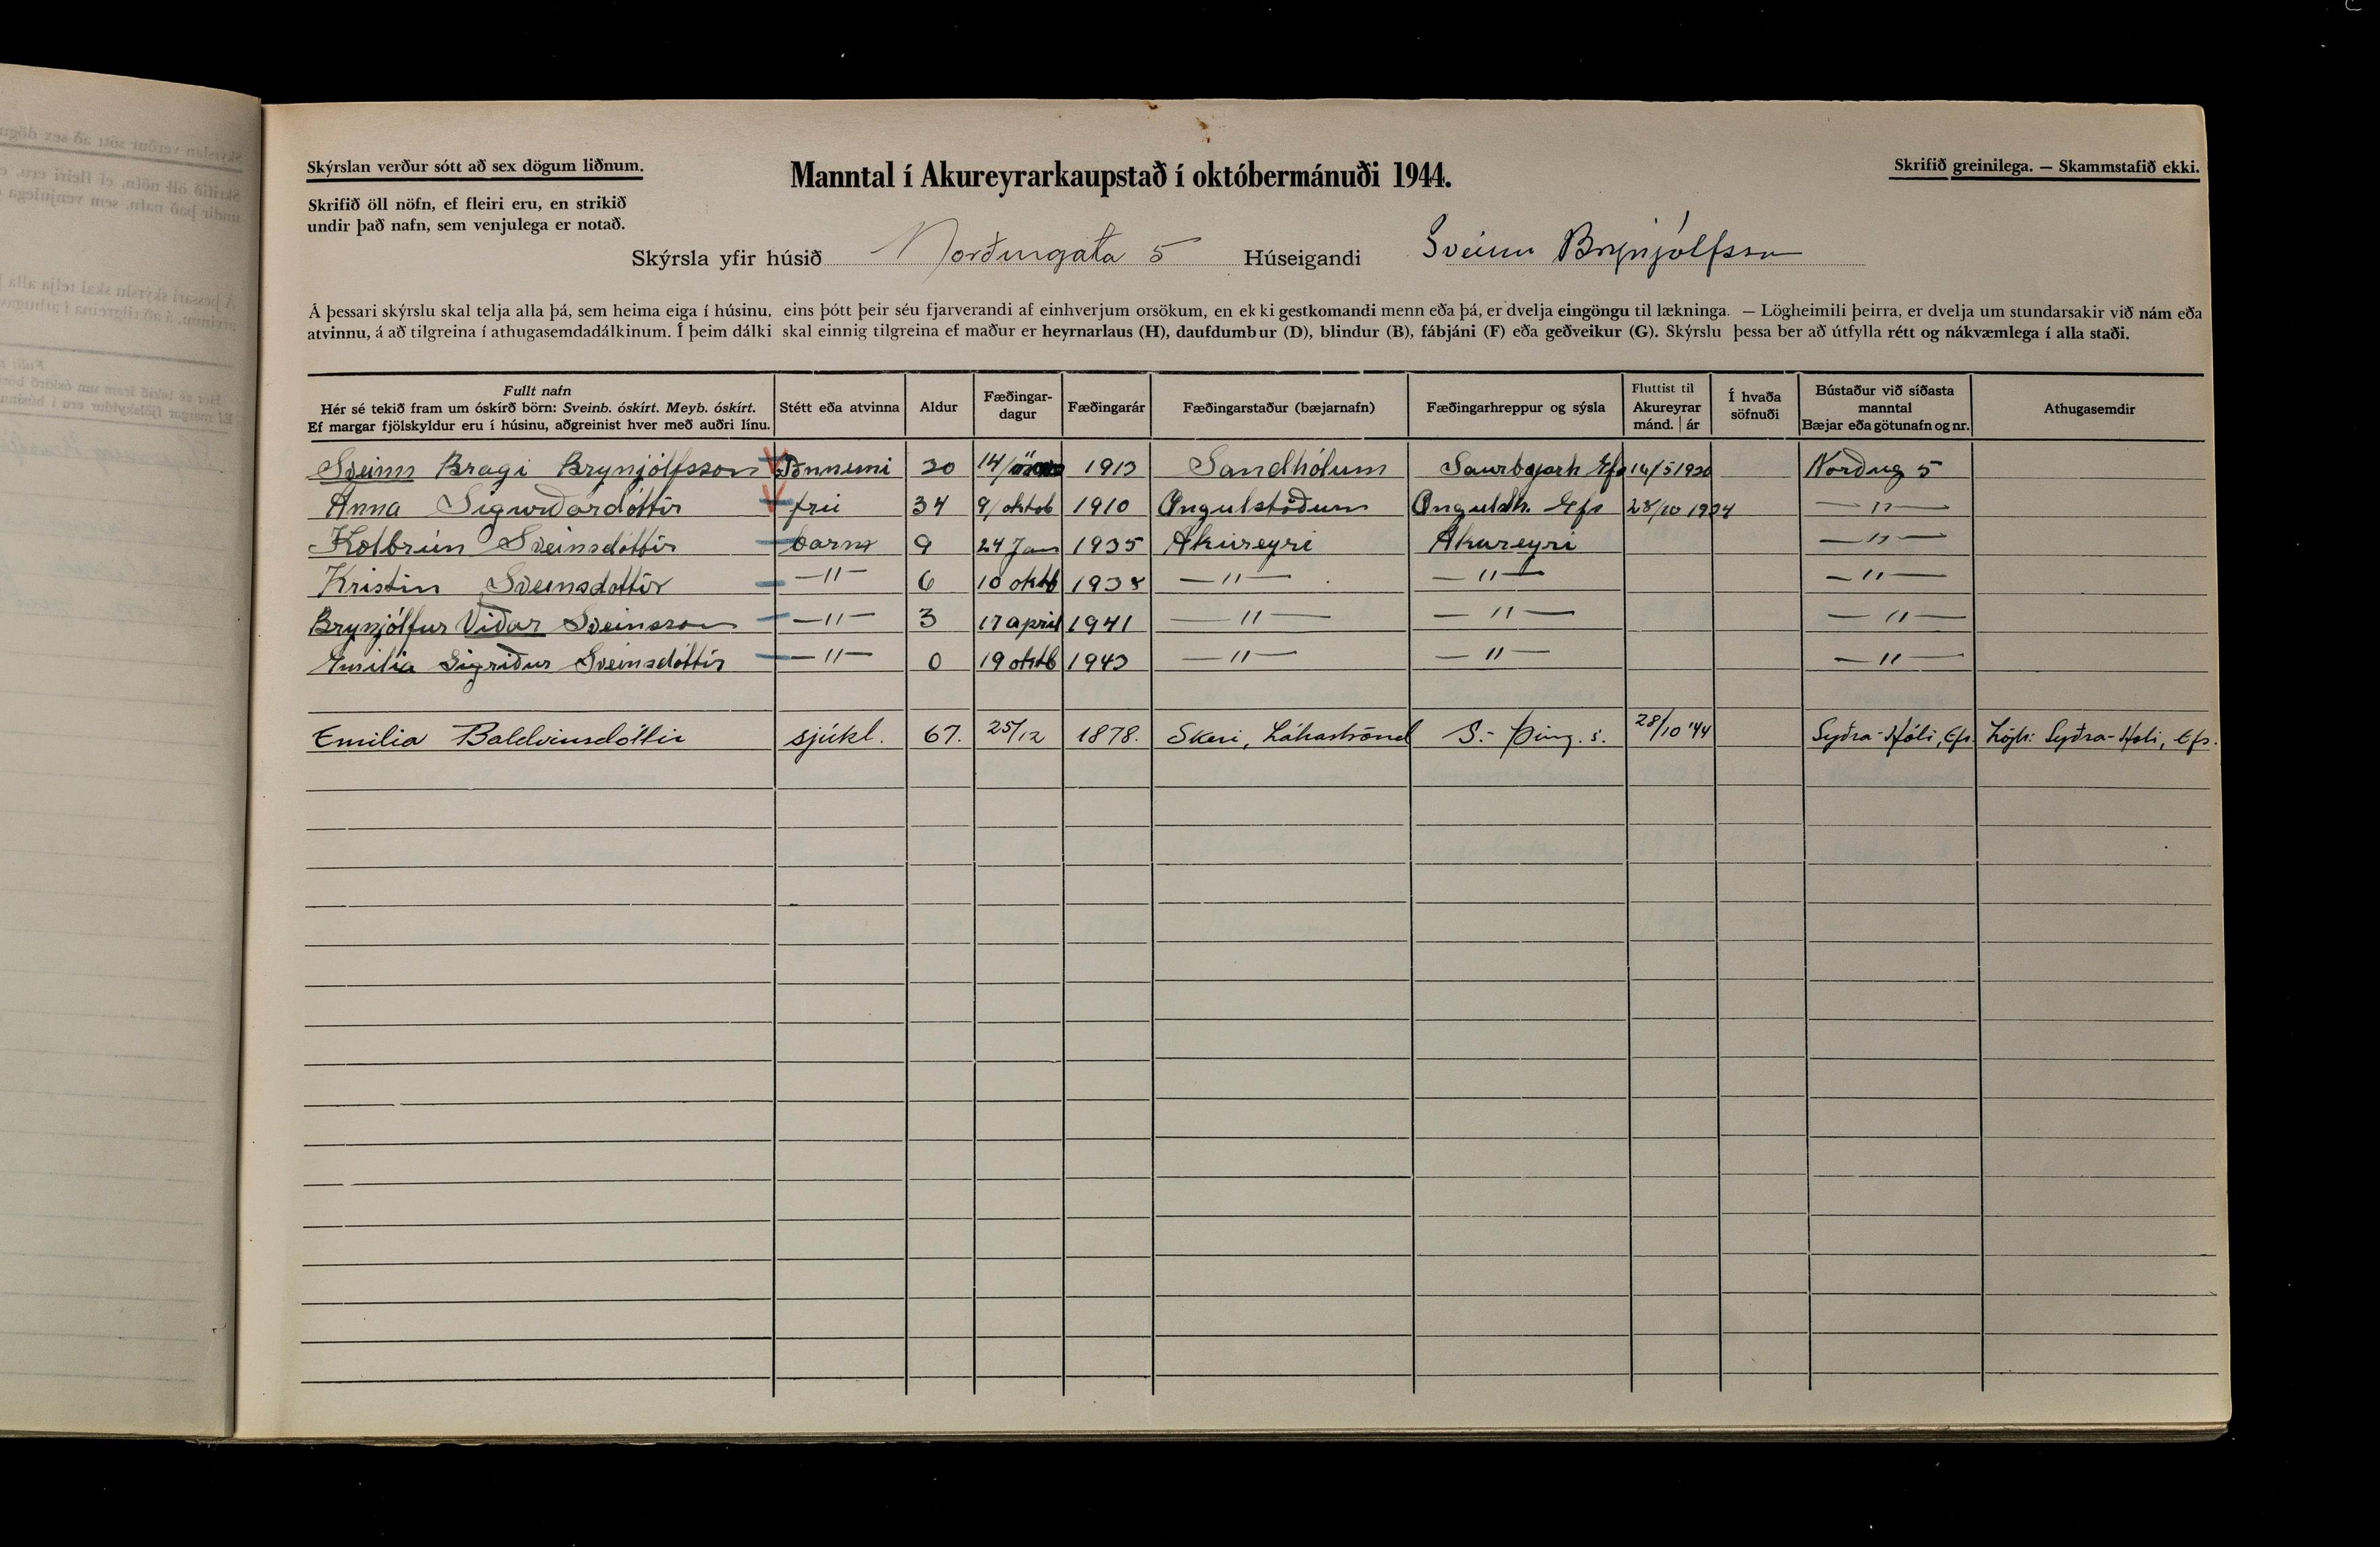 Skýrslan verður sótt að sex dögum liðnum.
Manntal í Akureyrarkaupstað í októbermánuði 1944.
Skrifið greinilega. — Skammstafið ekki.
Skrifið öll nöfn, ef fleiri eru, en strikið
undir það nafn, sem venjulega er notað.
Skýrsla yfir húsið Norðurgata 5 Húseigandi Sveinn Brynjólfsson
Á þessari skýrslu skal telja alla þá, sem heima eiga í húsinu, eins þótt þeir séu fjarverandi af einhverjum orsökum, en ekki gestkomandi menn eða þá, er dvelja eingöngu til lækninga. — Lögheimili þeirra, er dvelja um stundarsakir við nám eða
atvinnu, á að tilgreina í athugasemdadálkinum. Í þeim dálki skal einnig tilgreina ef maður er heyrnarlaus (H), daufdumbur (D), blindur (B), fábjáni (F) eða geðveikur (G). Skýrslu þessa ber að útfylla rétt og nákvæmlega í alla staði.
Fullt nafn
Hér sé tekið fram um óskírð börn: Sveinb. óskírt. Meyb. óskírt.
Ef margar fjölskyldur eru í húsinu, aðgreinist hver með auðri línu.
Stétt eða atvinna
Aldur
Fæðingar-
dagur
Fæðingarár
Fæðingarstaður (bæjarnafn)
Fæðingarhreppur og sýsla
Fluttist til
Akureyrar
mánd. | ár
Í hvaða
söfnuði
Bústaður við síðasta
manntal
Bæjar eða götunafn og nr.
Athugasemdir
Sveinn Bragi Brynjólfsson 30 14/ 1913 Sandhólum Saurbæjarh Efs 14/5 1930 Norðug 5
Anna Sigurðardóttir frú 34 9/oktob 1910 Öngulstöðum Öngulsth. Efs 28/10 1934 —"—
Kolbrún Sveinsdóttir barn 9 24 Jan 1935 Akureyri Akureyri —"—
Kristín Sveinsdóttir —"— 6 10 oktb 1938 —"— —"— —"—
Brynjólfur Viðar Sveinsson —"— 3 17 apríl 1941 —"— —"— —"—
Emilía Sigríður Sveinsdóttir —"— 0 19 oktb 1943 —"— —"— —"—
Emilía Baldvinsdóttir sjúkl. 67. 25/12 1878. Skeri, Látraströnd S.-Þing.s. 28/10 '44 Syðra-Hóli, Efs. Lögh: Syðra-Hóli, Efs.